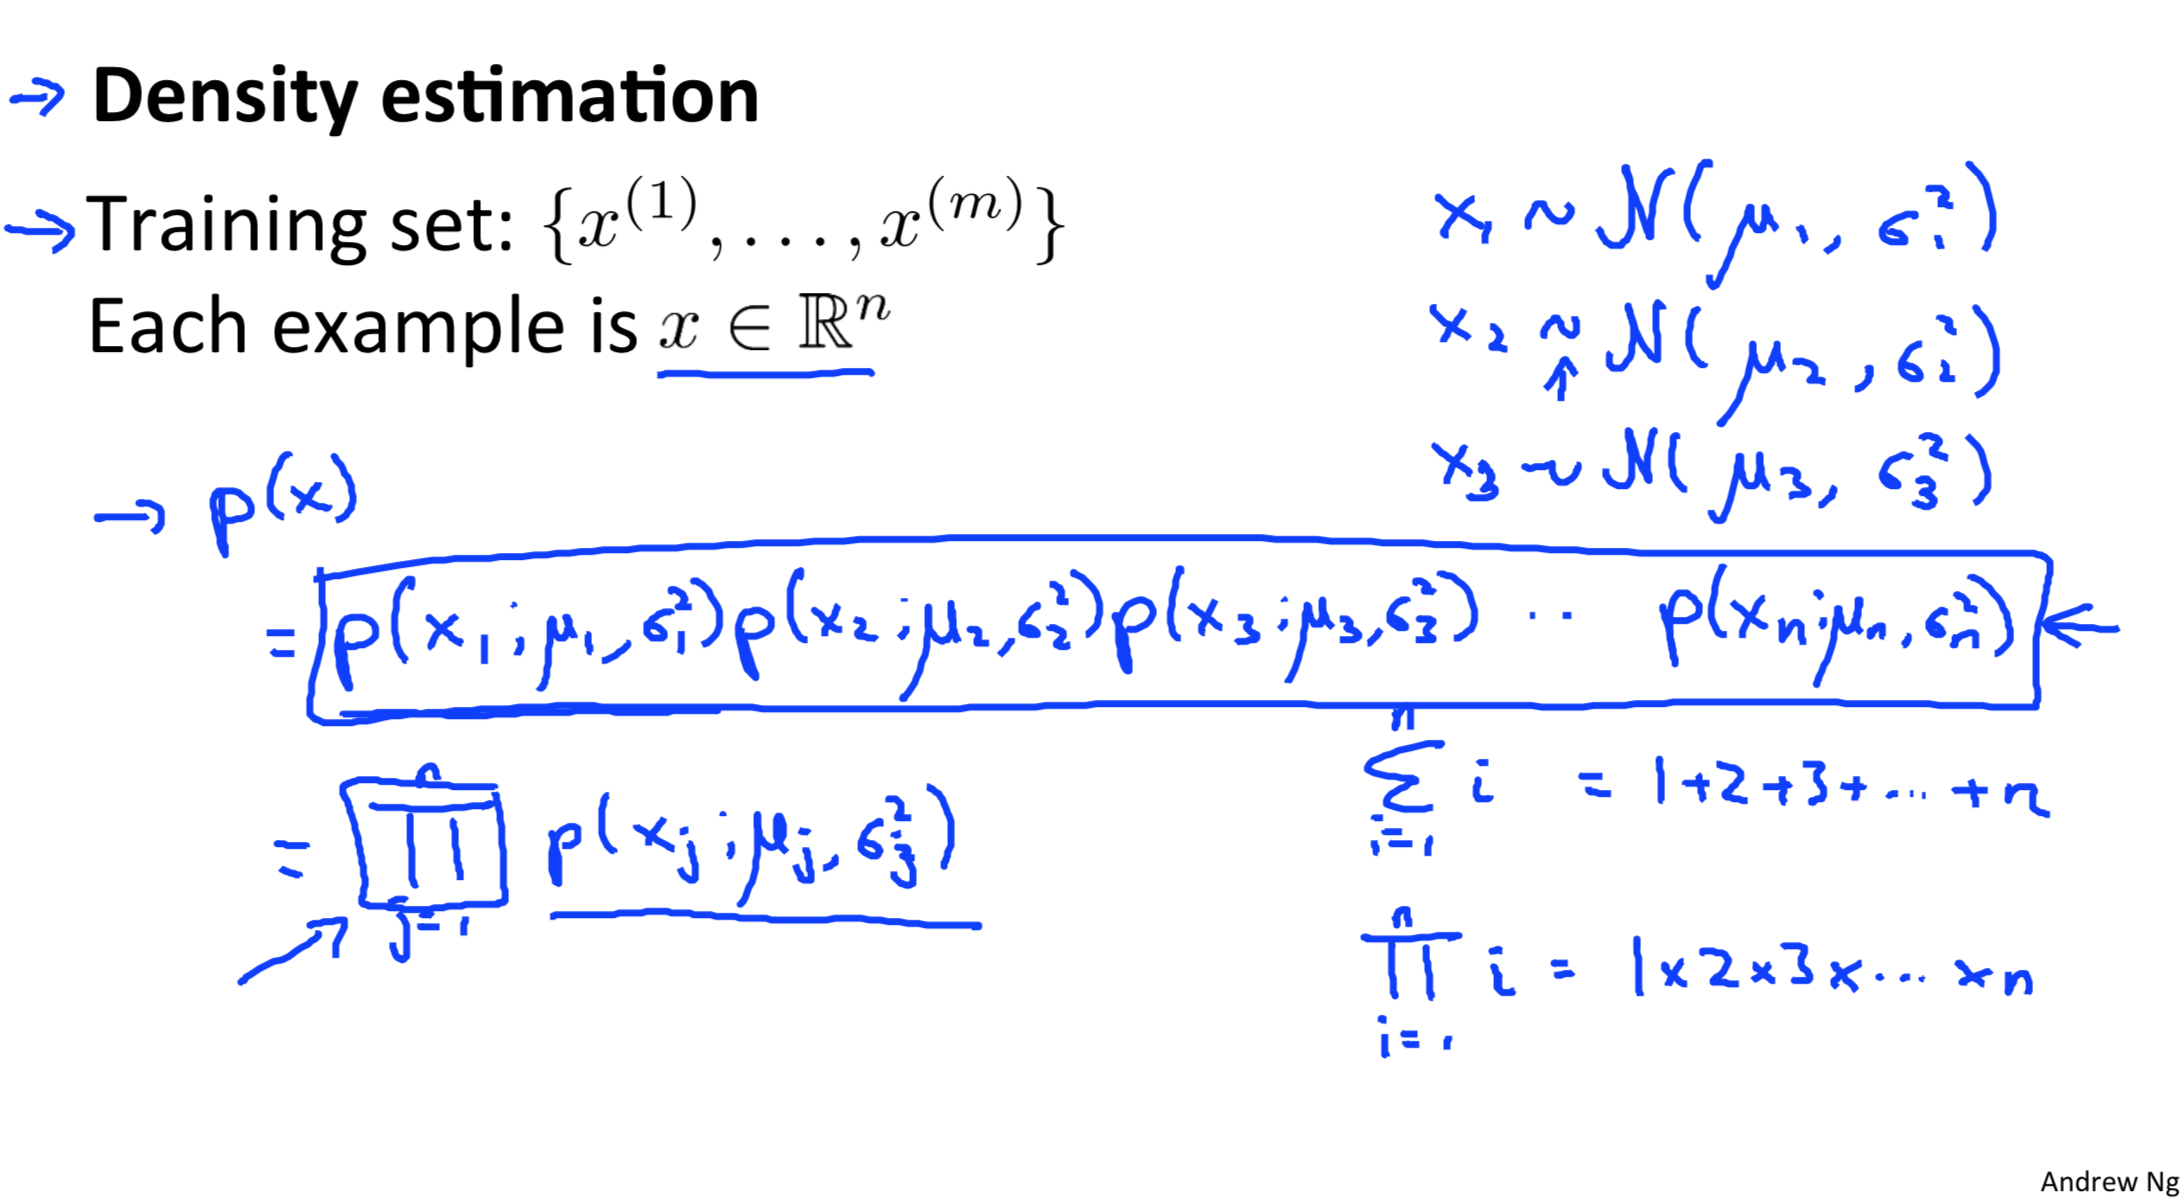 → Density estimation
→ Training set: {x^(1), . . . , x^(m)}
Each example is x ∈ ℝ^n
x₁ ~ N(μ₁, σ₁²)
x₂ ~ N(μ₂, σ₂²)
↑
x₃ ~ N(μ₃, σ₃²)
→ p(x)
= p(x₁; μ₁, σ₁²) p(x₂; μ₂, σ₂²) p(x₃; μ₃, σ₃²) ·· p(xₙ; μₙ, σₙ²) ←
= ∏_{j=1}^{n} p(xⱼ; μⱼ, σⱼ²)
∑_{i=1}^{n} i = 1+2+3+...+n
∏_{i=1}^{n} i = 1×2×3×...×n
Andrew Ng